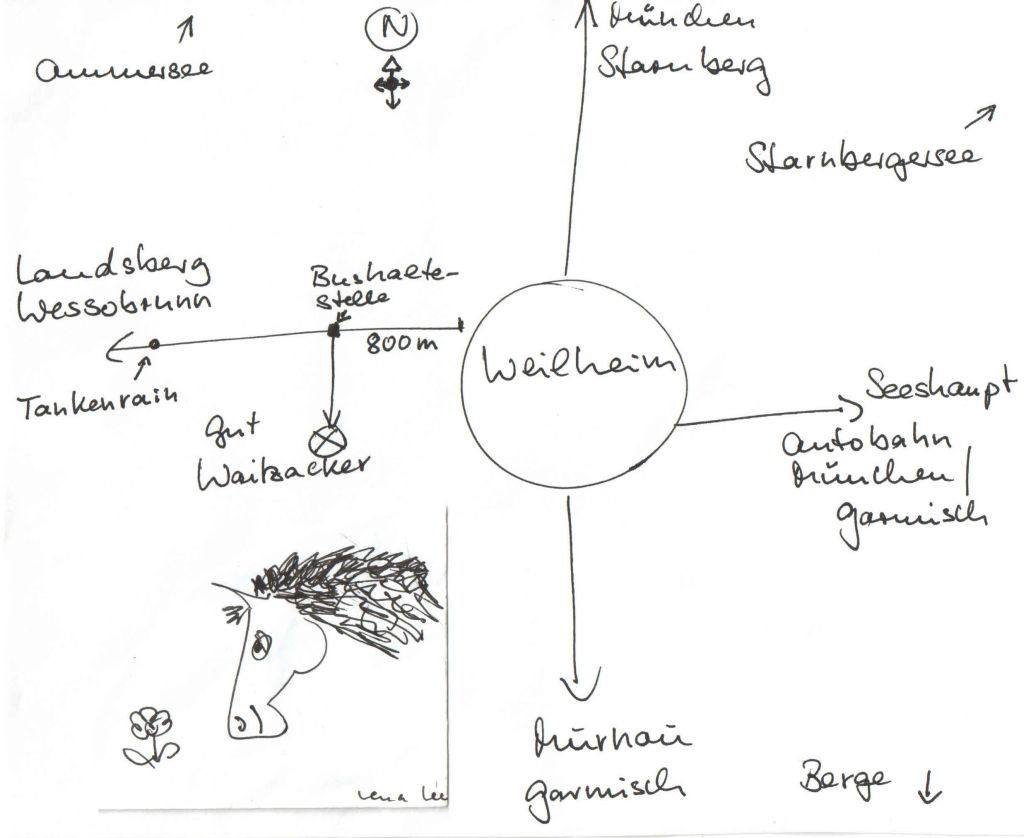 N
Ammersee
München
Starnberg
Starnbergersee
Landsberg
Wessobrunn
Bushalte-
stelle
800m
Tankenrain
Gut
Waitzacker
Weilheim
Seeshaupt
Autobahn
München/
Garmisch
Murnau
Garmisch
Berge
Lena